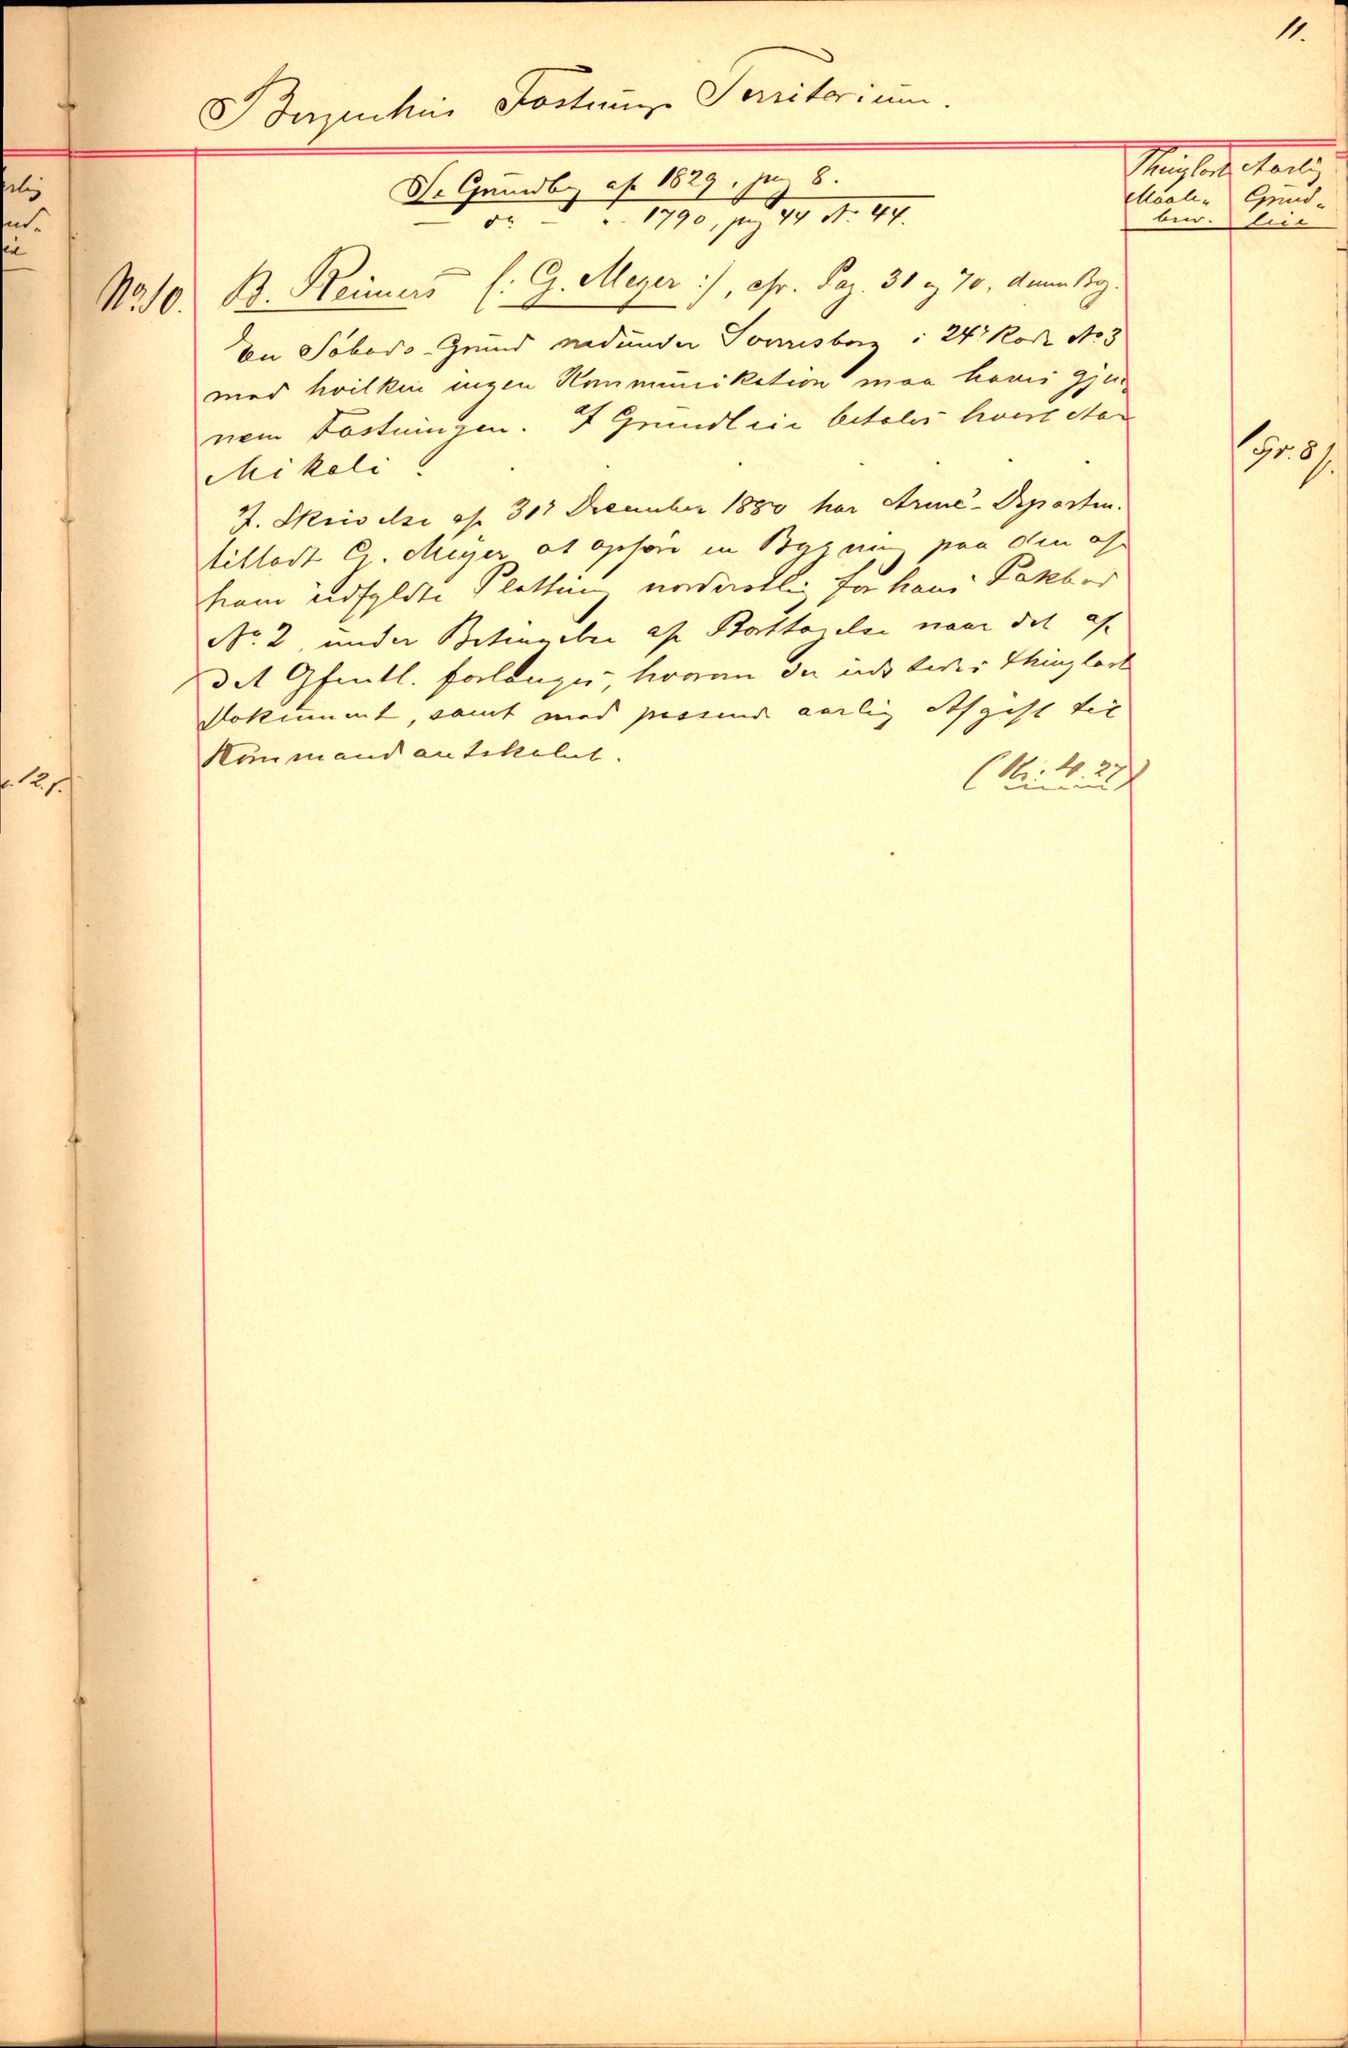 11.
Bergenhus Fæstnings Territorium.
Se Grundbog af 1829, pag 8.
— do — " 1790, pag 44 No 44.
Thinglæst Maalebrev.
Aarlig Grundleie
No 10. B. Reimers (: G. Meyer :), cfr. Pag. 31 og 70, denne Bog.
En Söbods-Grund nedunder Sverresborg i 24' Rode No 3
med hvilken ingen Kommunikation maa haves gjen-
nem Fæstningen. I Grundleie betales hvert Aar
Mikeli.
1 Gr. 8 s.
I Skrivelse af 31' December 1880 har Armé-Departem.
tilladt G. Meyer at opföre en Bygning paa den af
ham udfyldte Plathing nordvestlig for hans Pakbod
No 2, under Betingelse af Borttagelse naar det af
det Offentl. forlanges, hvorom der udstedes thinglæst
Dokument, samt mod passende aarlig Afgift til
Kommandantskabet.
erlig
und-
eie
12 s.